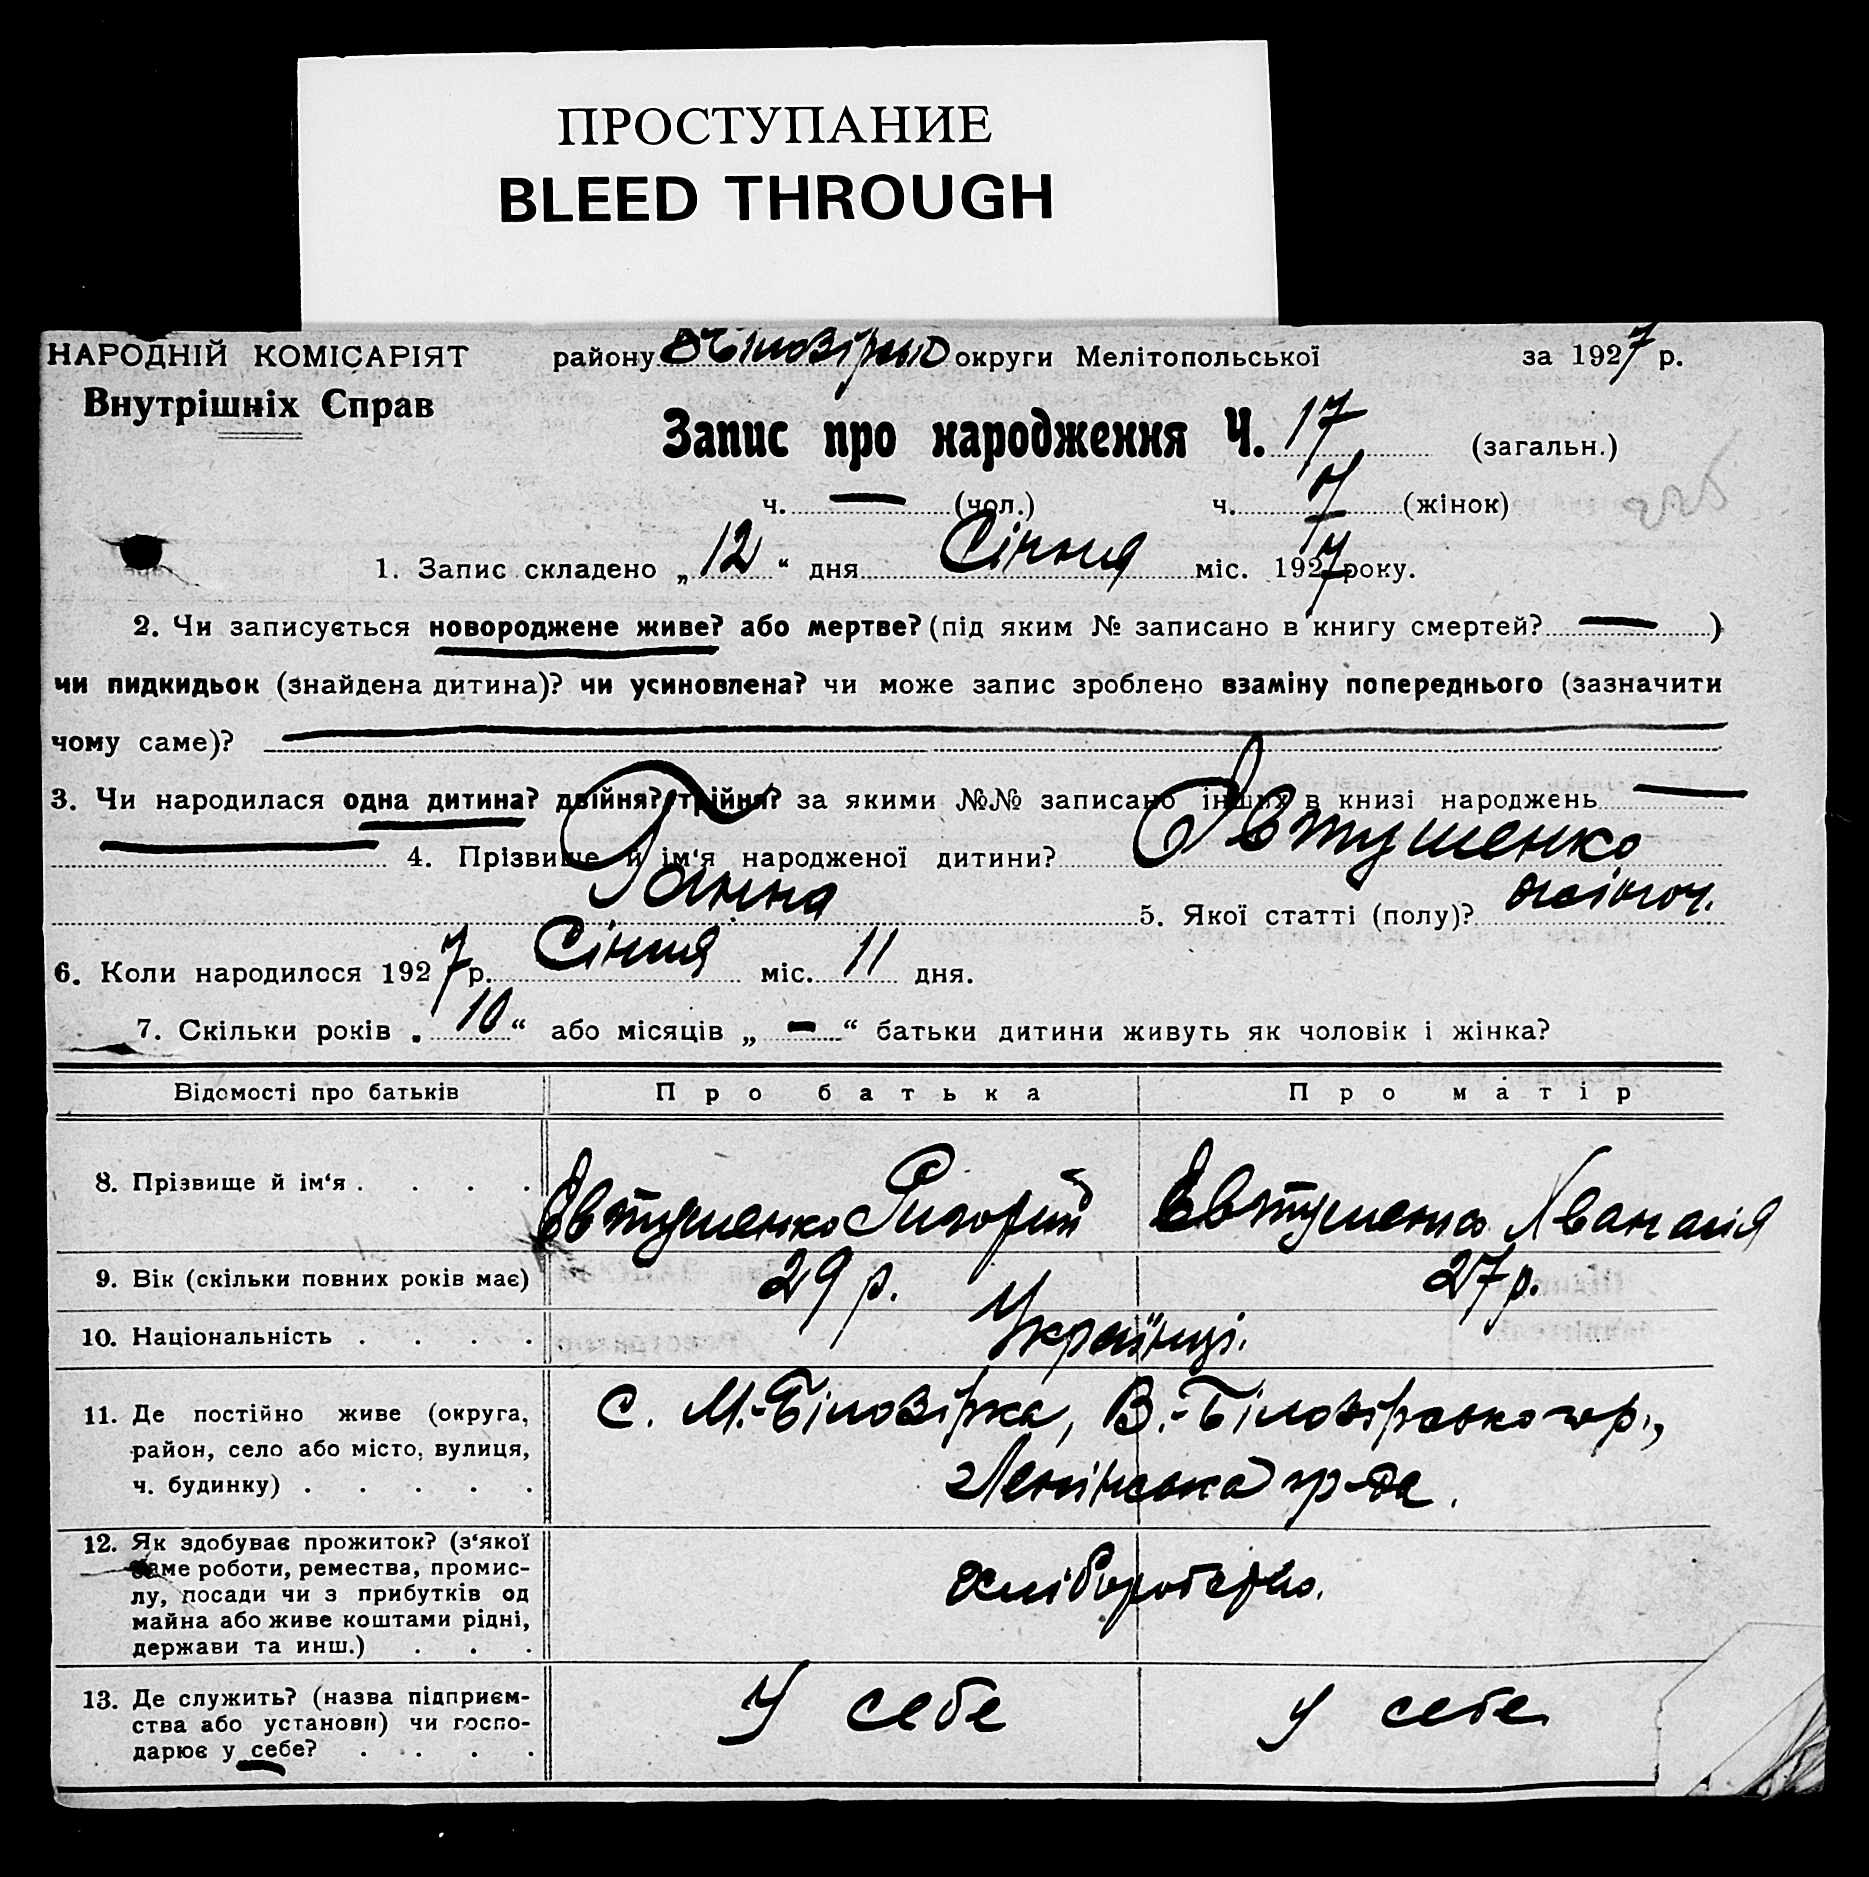 ПРОСТУПАНИЕ
BLEED THROUGH
НАРОДНІЙ КОМІСАРІЯТ району округи Мелітопольської за 1927 р.
Внутрішніх Справ
Запис про народження Ч. 17 (загальн.)
ч. — (чол.) ч. 7 (жінок)
1. Запис складено „12“ дня Січня міс. 1927 року.
2. Чи записується новороджене живе? або мертве? (під яким № записано в книгу смертей? —)
чи пидкидьок (знайдена дитина)? чи усиновлена? чи може запис зроблено взаміну попереднього (зазначити
чому саме)? —
3. Чи народилася одна дитина? двійня? трійня? за якими №№ записано інших в книзі народжень —
— 4. Прізвище й ім‘я народженої дитини? Євтушенко
Ганна 5. Якої статті (полу)? жіноч.
6. Коли народилося 1927 р. Січня міс. 11 дня.
7. Скільки років „10“ або місяців „—“ батьки дитини живуть як чоловік і жінка?
Відомості про батьків Про батька Про матір
8. Прізвище й ім‘я . . . . Євтушенко Григорий Євтушенко
9. Вік (скільки повних років має) 29 р. 27 р.
10. Національність . . . . Українці.
11. Де постійно живе (округа, С. М.-Біловірка, В.-Біловірського р.,
район, село або місто, вулиця,
ч. будинку) . . . . . Ленінська гр-да.
12. Як здобуває прожиток? (з‘якої
саме роботи, ремества, промис-
лу, посади чи з прибутків од
майна або живе коштами рідні,
держави та инш.) . . .
13. Де служить? (назва підприєм- У себе У себе
ства або установи) чи госпо-
дарює у себе? . . . .